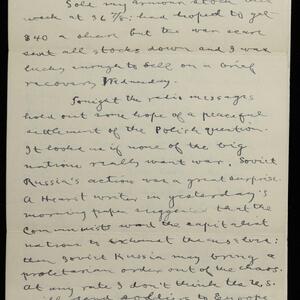 Sold my armour stock last
week at 36 7/8; had hoped to get
$40 a share but the war scare
sent all stocks down and I was
lucky enough to sell on a brief
recovery Wednesday.
Tonight the radio messages
hold out some hope of a peaceful
settlement of the Polish question.
It looks as if none of the big
nations really want war. Soviet
Russia's action was a great surprise.
A Hearst writer in yesterday's
morning paper suggested that the
Communists want the capitalist
nations to exhaust themselves;
then Soviet Russia may bring a
proletarian order out of the chaos.
At any rate I don't think the U.S.
will send soldiers to Europe